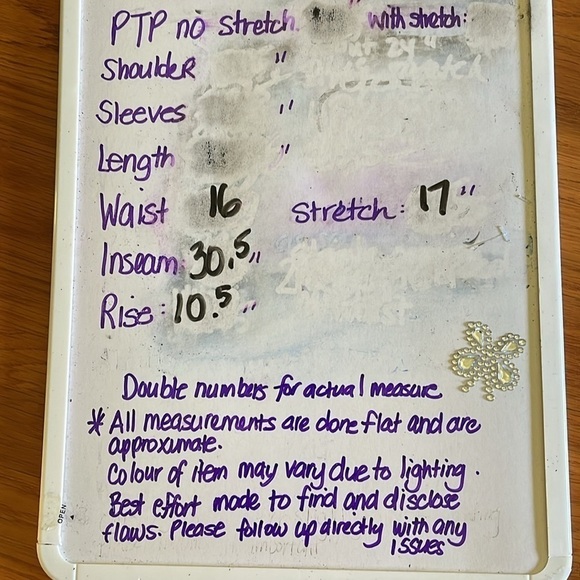 PTP no stretch. " with stretch:
Shoulder "
Sleeves "
Length "
Waist 16 stretch: 17"
Inseam: 30.5"
Rise: 10.5"
Double numbers for actual measure
* All measurements are done flat and are
approximate.
Colour of item may vary due to lighting.
Best effort made to find and disclose
flaws. Please follow up directly with any
issues
OPEN